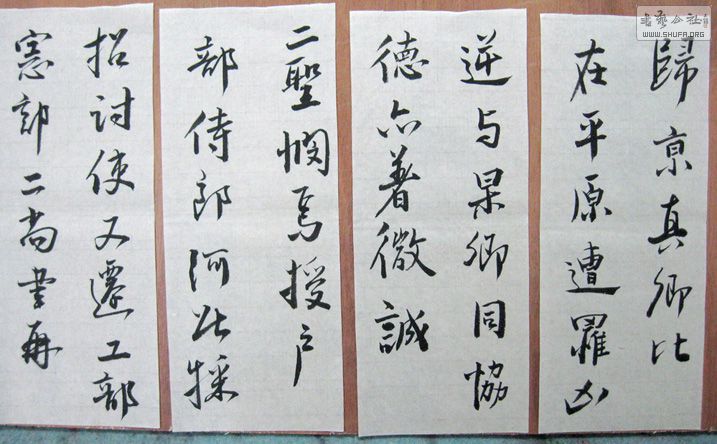 歸京真卿比
在平原遭罹凶
逆与杲卿同協
德亦著微誠
二聖憫焉授户
部侍郎河北採
招討使又遷工部
憲部二尚書再
書藝公社
WWW.SHUFA.ORG